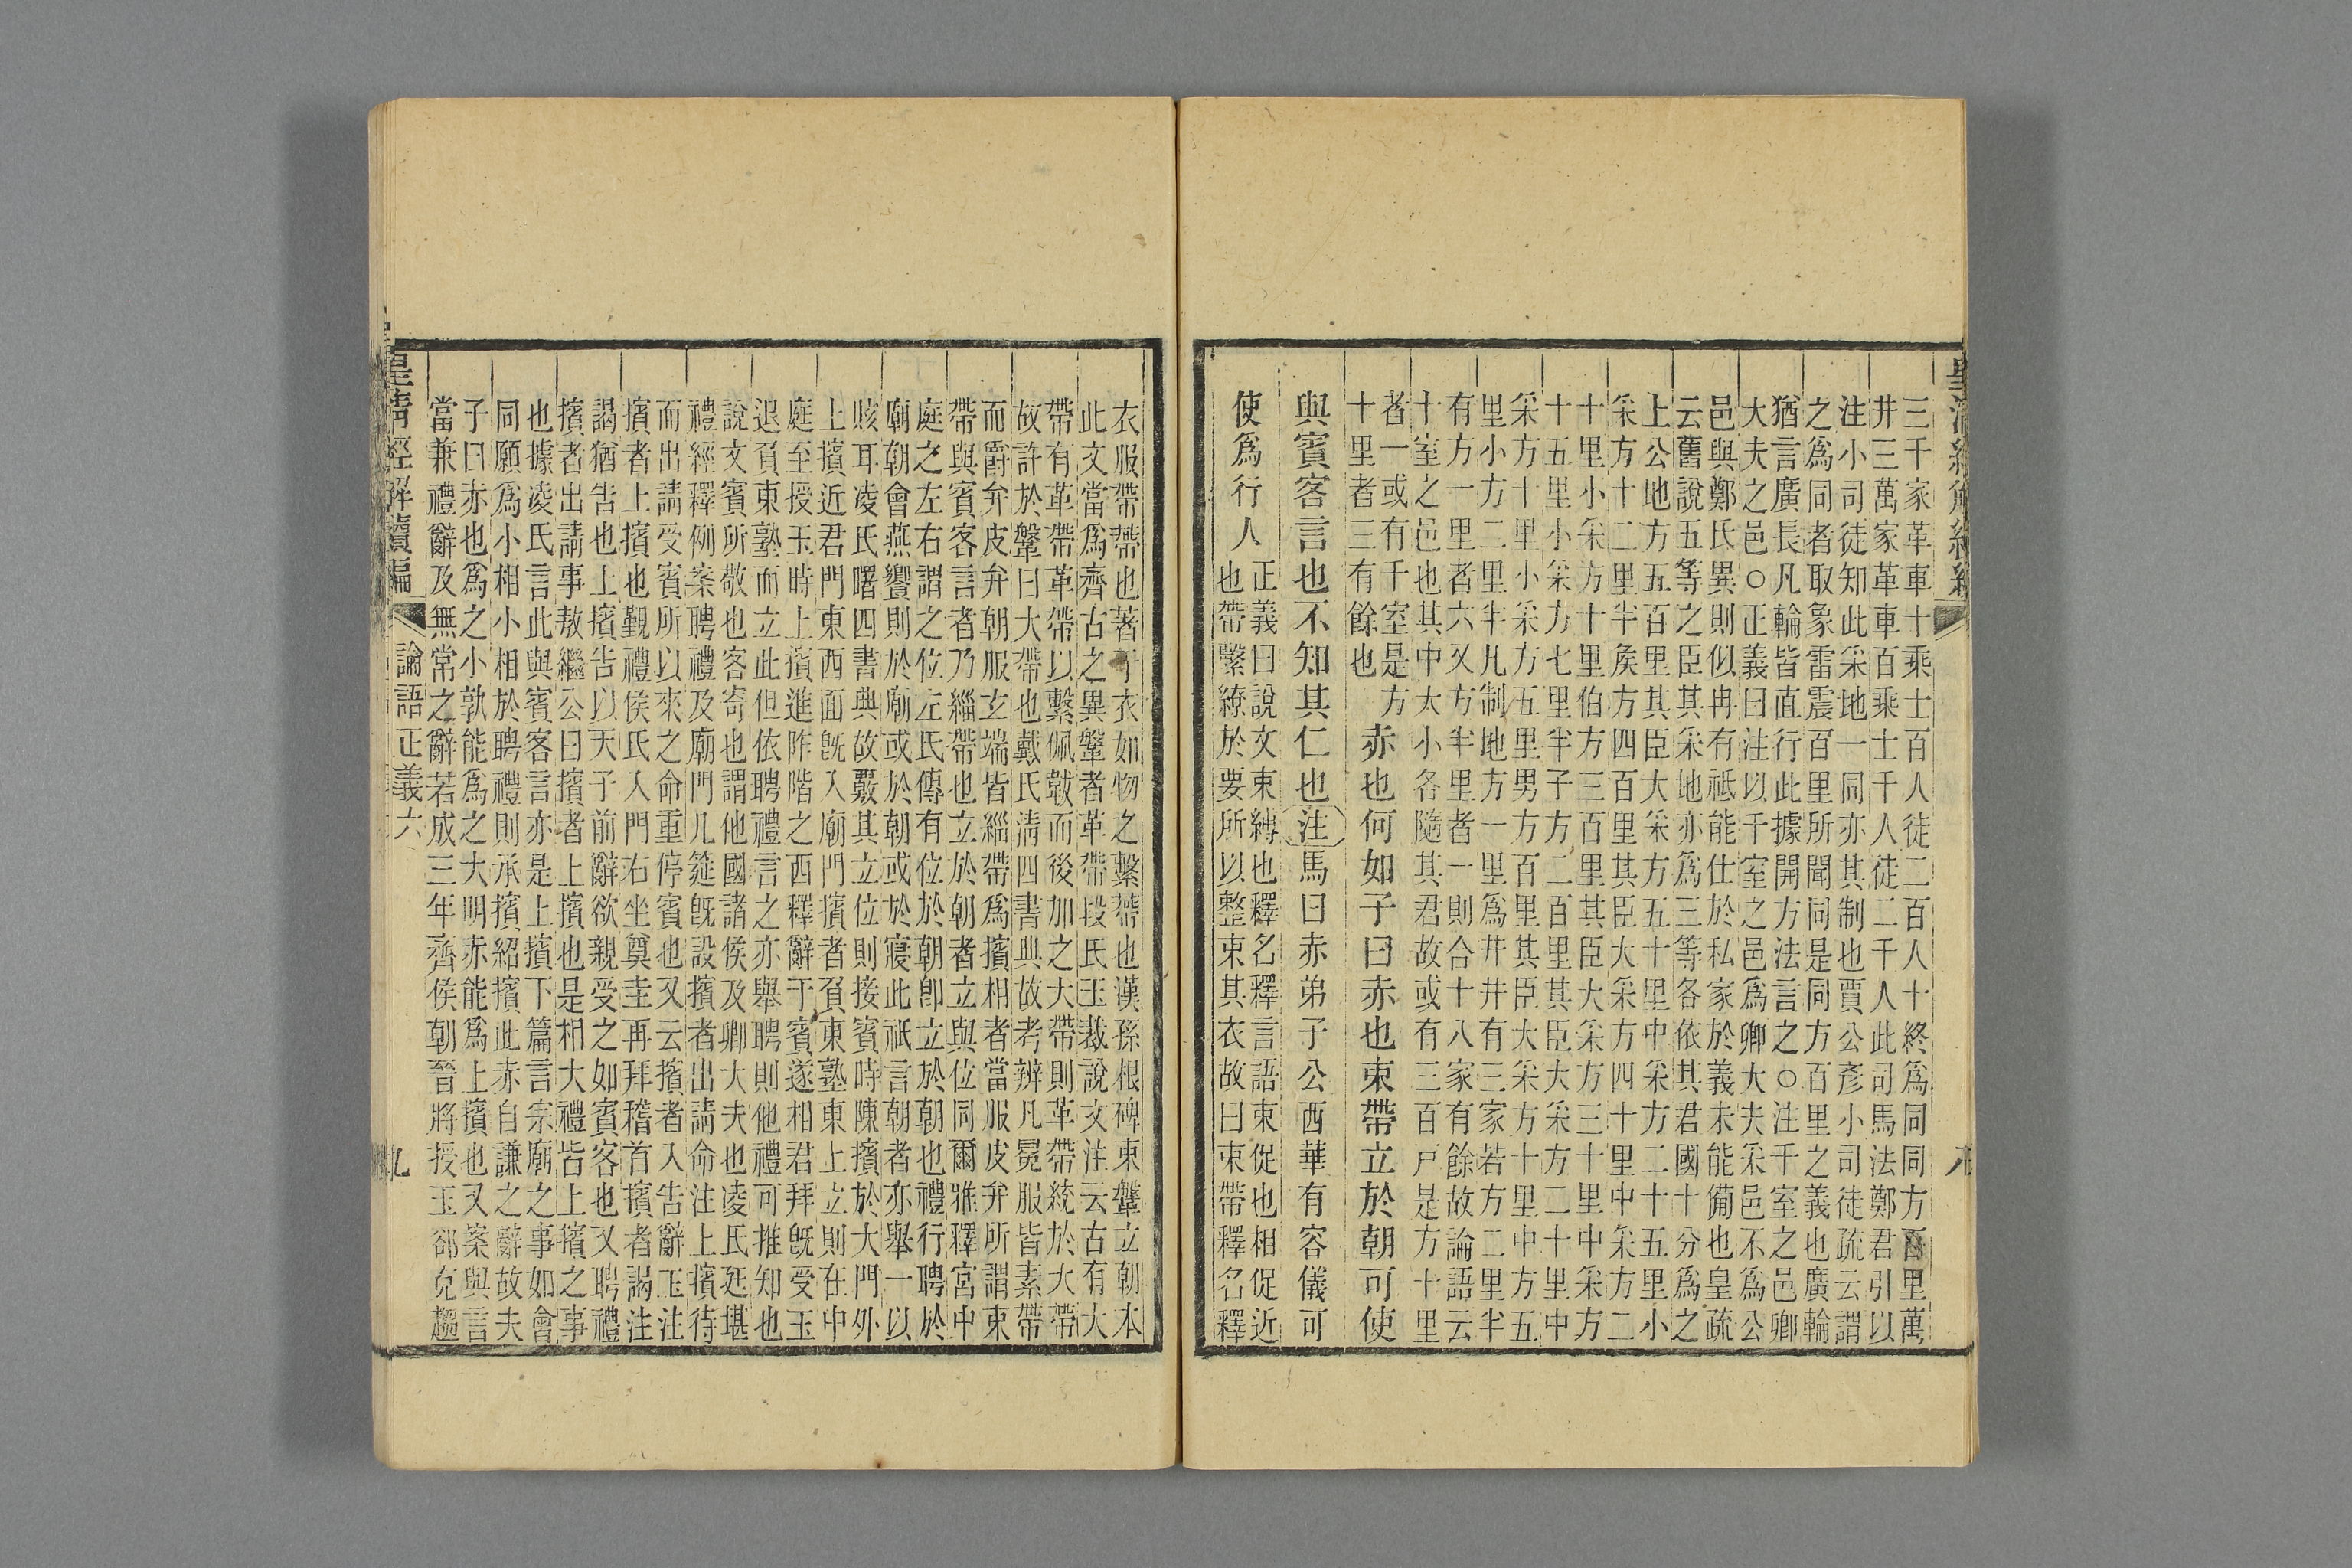 三千家革車十乘士百人徒二百人十終爲同同方百里萬
井三萬家革車百乘士千人徒二千人此司馬法鄭君引以
注小司徒知此采地一同亦其制也賈公彥小司徒疏云謂
之爲同者取象雷震百里所聞同是同方百里之義也廣輪
猶言廣長凡輪皆直行此據開方法言之○注千室之邑卿
大夫之邑○正義曰注以千室之邑爲卿大夫采邑不爲公
邑與鄭氏異則似冉有祗能仕於私家於義未能備也皇疏
云舊說五等之臣其采地亦爲三等各依其君國十分爲之
上公地方五百里其臣大采方五十里中采方二十五里小
采方十二里半矦方四百里其臣大采方四十里中采方二
十里小采方十里伯方三百里其臣大采方三十里中采方
十五里小采方七里半子方二百里其臣大采方二十里中
采方十里小采方五里男方百里其臣大采方十里中方五
里小方二里半凡制地方一里爲井井有三家若方二里半
有方一里者六又方半里者一則合十八家有餘故論語云
十室之邑也其中大小各隨其君故或有三百戸是方十里
者一或有千室是方
十里者三有餘也
赤也何如子曰赤也束帶立於朝可使
與賓客言也不知其仁也注馬曰赤弟子公西華有容儀可
使爲行人
正義曰說文束縛也釋名釋言語束促也相促近
也帶繫繚於要所以整束其衣故曰束帶釋名釋
皇清經解續編
八
衣服帶蔕也著于衣如物之繫蔕也漢孫根碑束鞶立朝本
此文當爲齊古之異鞶者革帶段氏玉裁說文注云古有大
帶有革帶革帶以繫佩韍而後加之大帶則革帶統於大帶
故許於鞶曰大帶也戴氏淸四書典故考辨凡冕服皆素帶
而爵弁皮弁朝服玄端皆緇帶爲擯相者當服皮弁所謂束
帶與賓客言者乃緇帶也立於朝者立與位同爾雅釋宮中
庭之左右謂之位左氏傳有位於朝卽立於朝也禮行聘於
廟朝會燕饗則於廟或於朝或於寢此祇言朝者亦舉一以
賅耳凌氏曙四書典故覈其立位則接賓時陳擯於大門外
上擯近君門東西面旣入廟門擯者負東塾東上立則在中
庭至授玉時上擯進阼階之西釋辭于賓遂相君拜旣受玉
退負東塾而立此但依聘禮言之亦舉聘則他禮可推知也
說文賓所敬也客寄也謂他國諸侯及卿大夫也凌氏廷堪
禮經釋例案聘禮及廟門几筵旣設擯者出請命注上擯待
而出請受賓所以來之命重停賓也又云擯者入告辭玉注
擯者上擯也覲禮侯氏入門右坐奠圭再拜稽首擯者謁注
謁猶告也上擯告以天子前辭欲親受之如賓客也又聘禮
擯者出請事敖繼公曰擯者上擯也是相大禮皆上擯之事
也據凌氏言此與賓客言亦是上擯下篇言宗廟之事如會
同願爲小相小相於聘禮則承擯紹擯此赤自謙之辭故夫
子曰赤也爲之小孰能爲之大明赤能爲上擯也又案與言
當兼禮辭及無常之辭若成三年齊侯朝晉將授玉郤克趨
皇清經解續編
論語正義六
九